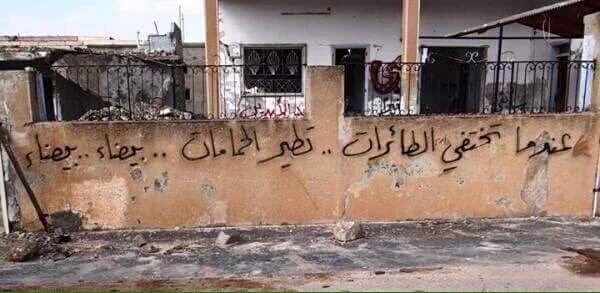 عندما تختفي الطائرات .. تطير الحمامات .. بيضاء .. بيضاء